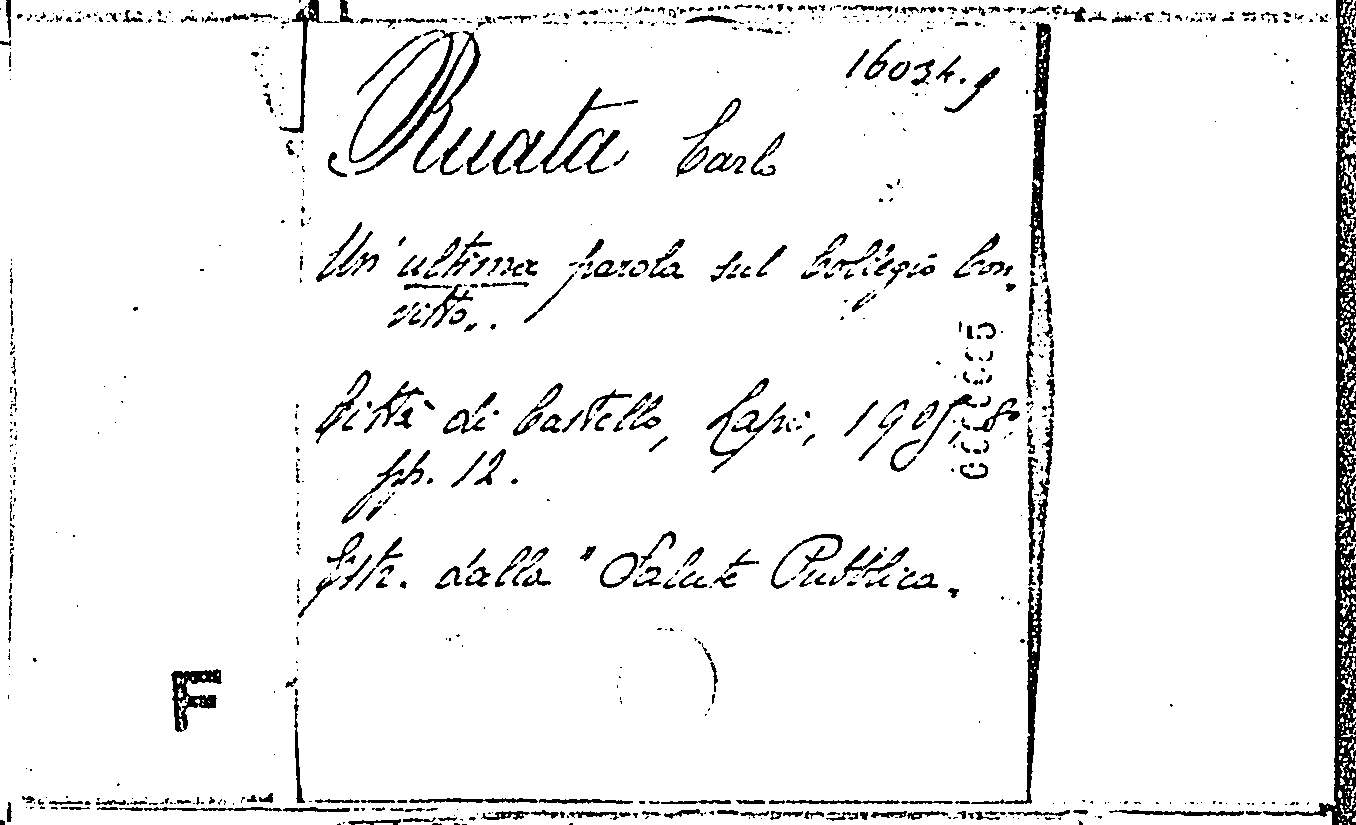 16034.9
Ruata Carlo
Un' ultima parola sul Collegio Con-
vitto..
Città di Castello, Lapi, 1905, 8º
pp. 12.
Estr. dalla "Salute Pubblica.
0000005
F